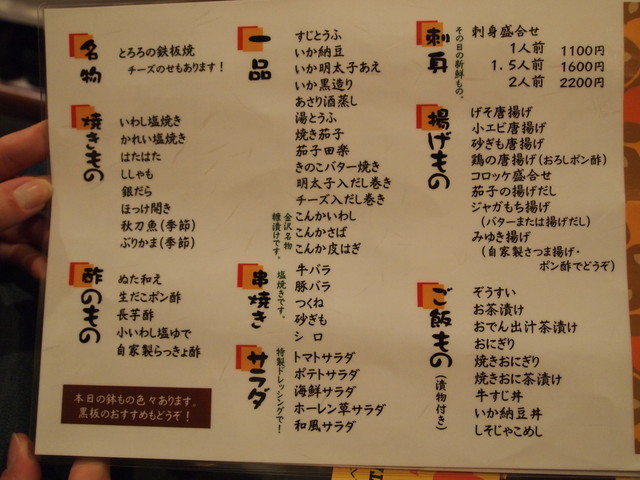 名物
とろろの鉄板焼
チーズのせもあります！
焼きもの
いわし塩焼き
かれい塩焼き
はたはた
ししゃも
銀だら
ほっけ開き
秋刀魚(季節)
ぶりかま(季節)
酢のもの
ぬた和え
生だこポン酢
長芋酢
小いわし塩ゆで
自家製らっきょ酢
本日の鉢もの色々あります。
黒板のおすすめもどうぞ！
一品
すじとうふ
いか納豆
いか明太子あえ
いか黒造り
あさり酒蒸し
湯とうふ
焼き茄子
茄子田楽
きのこバター焼き
明太子入だし巻き
チーズ入だし巻き
金沢名物
糠漬けです。
こんかいわし
こんかさば
こんか皮はぎ
串焼き
塩焼きです。
牛バラ
豚バラ
つくね
砂ぎも
シロ
サラダ
特製ドレッシングで！
トマトサラダ
ポテトサラダ
海鮮サラダ
ホーレン草サラダ
和風サラダ
刺身
その日の新鮮もの。
刺身盛合せ
1人前 1100円
1.5人前 1600円
2人前 2200円
揚げもの
げそ唐揚げ
小エビ唐揚げ
砂ぎも唐揚げ
鶏の唐揚げ(おろしポン酢)
コロッケ盛合せ
茄子の揚げだし
ジャガもち揚げ
(バターまたは揚げだし)
みゆき揚げ
(自家製さつま揚げ・
ポン酢でどうぞ)
ご飯もの
(漬物付き)
ぞうすい
お茶漬け
おでん出汁茶漬け
おにぎり
焼きおにぎり
焼きおに茶漬け
牛すじ丼
いか納豆丼
しそじゃこめし